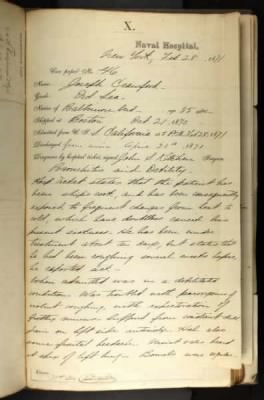 X.
Naval Hospital,
New York, Feb 28. 1871
Case paper No. 46
Name: Joseph Crawford
Grade: Ord Sea.
Native of Baltimore Md. age 25 ae.
Shipped at Boston Oct 21 1870
Admitted from U.S.S. California at P.M. Feb 28. 1871
Discharged from April 20th 1871
Diagnosis by hospital ticket, signed John S. Kitchen Surgeon
Bronchitis and Debility.
Hosp ticket states that the patient has
been ship's cook, and has been consequently
exposed to frequent changes from heat to
cold, which have doubtless caused his
present sickness. He has been under
treatment about ten days, but states that
he had been coughing several weeks before
he reported sick.
When admitted was in a debilitated
condition. Was troubled with paroxysms of
violent coughing with expectoration of
frothy mucus. Suffered from constant
pain on left side anteriorly. Had also
some frontal headache. Moist râles heard
at apex of left lung. Bowels was